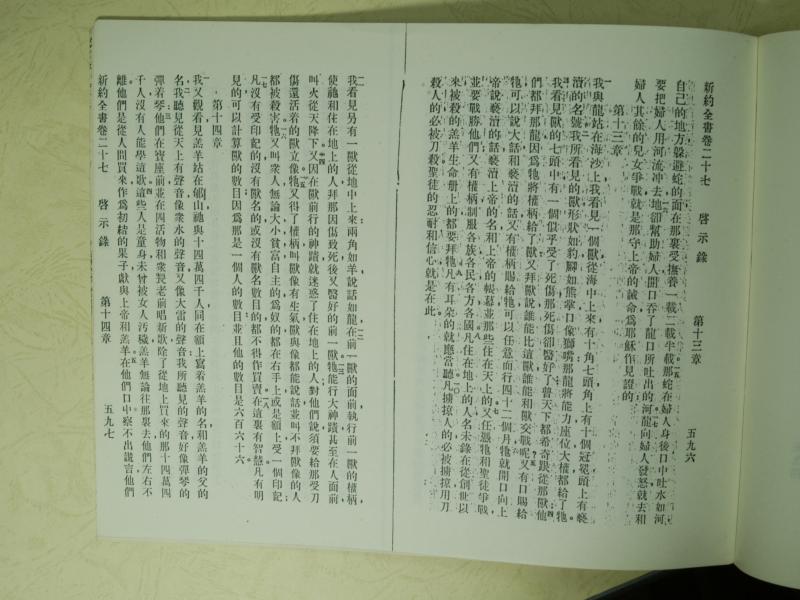 新約全書卷二十七 啓示錄 第十三章 五九六
自己的地方躱避蛇的面在那裏受撫養一載二載半載那蛇在婦人身後口中吐水如河
要把婦人用河流冲去地卻幫助婦人開口吞了龍口所吐出的河龍向婦人發怒就去和
婦人其餘的兒女爭戰就是那守上帝的誡命爲耶穌作見證的
第十三章
我與龍站在海沙上我看見一個獸從海中上來有十角七頭角上有十個冠冕頭上有褻
瀆的名號我所看見的獸形狀如豹腳如熊掌口像獅嘴那龍將能力座位大權都給了牠
我看見獸的七頭中有一個似乎受了死傷那死傷卻醫好了普天下都希奇跟從那獸他
們都拜那龍因爲牠將權柄給了獸又拜獸說誰能比這獸誰能和獸交戰呢又有口賜給
牠可以說大話和褻瀆的話又有權柄賜給牠可以任意而行四十二個月牠就開口向上
帝說褻瀆的話褻瀆上帝的名和上帝的帳幕並那些住在天上的又任憑牠和聖徒爭戰
並要戰勝他們又有權柄制服各族各民各方各國凡住在地上的人名未錄在從創世以
來被殺的羔羊生命册上的都要拜牠凡有耳朶的就應當聽凡擄掠人的必被擄掠用刀
殺人的必被刀殺聖徒的忍耐和信心就是在此
我看見另有一獸從地中上來兩角如羊說話如龍在前一獸的面前執行前一獸的權柄
使祂和住在地上的人拜那因傷致死後又醫好的前一獸牠能行大神蹟甚至在人面前
叫火從天降下又因在獸前行的神蹟就迷惑了住在地上的人對他們說須要給那受刀
傷還活着的獸立像牠又得了權柄叫獸像有生氣獸與像都能說話並叫不拜獸像的人
都被殺害牠又叫衆人無論大小貧富自主的爲奴的都在右手上或是額上受一個印記
凡沒有受印記的沒有獸名的或沒有獸名數目的都不得作買賣在這裏有智慧凡有明
見的可以計算獸的數目因爲那是一個人的數目並且他的數目是六百六十六
第十四章
我又觀看見羔羊站在郇山祂與十四萬四千人同在額上寫着羔羊的名和羔羊的父的
名我聽見從天上有聲音像衆水的聲音又像大雷的聲音我所聽見的聲音好像彈琴的
彈着琴他們在寶座前並在四活物和衆耆老前唱新歌除了從地上買來的那十四萬四
千人沒有人能學這歌這些人是童身未曾被女人汚穢羔羊無論往那裏去他們左右不
離他們是從人間買來作爲初結的果子獻與上帝和羔羊在他們口中察不出謊言他們
新約全書卷二十七 啓示錄 第十四章 五九七